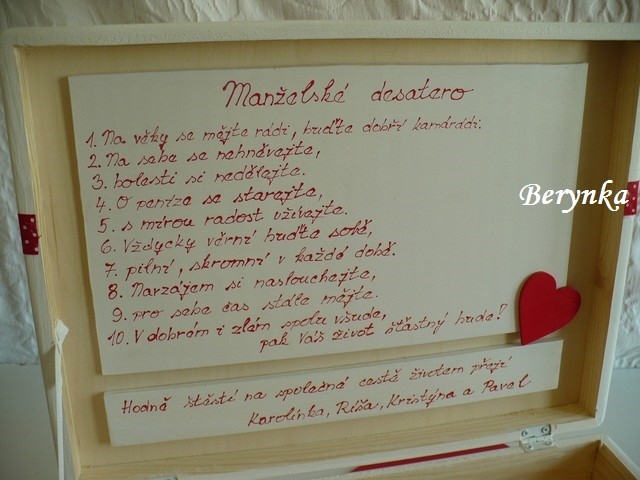 Manželské desatero
1. Na věky se mějte rádi, buďte dobří kamarádi.
2. Na sebe se nehněvejte,
3. bolesti si nedělejte.
4. O peníze se starejte,
5. s mírou radost užívejte.
6. Vždycky věrní buďte sobě,
7. pilní, skromní v každé době.
8. Navzájem si naslouchejte,
9. pro sebe čas stále mějte.
10. V dobrém i zlém spolu všude,
pak Váš život šťastný bude!
Berynka
Hodně štěstí na společné cestě životem přejí
Karolínka, Ríša, Kristýna a Pavel